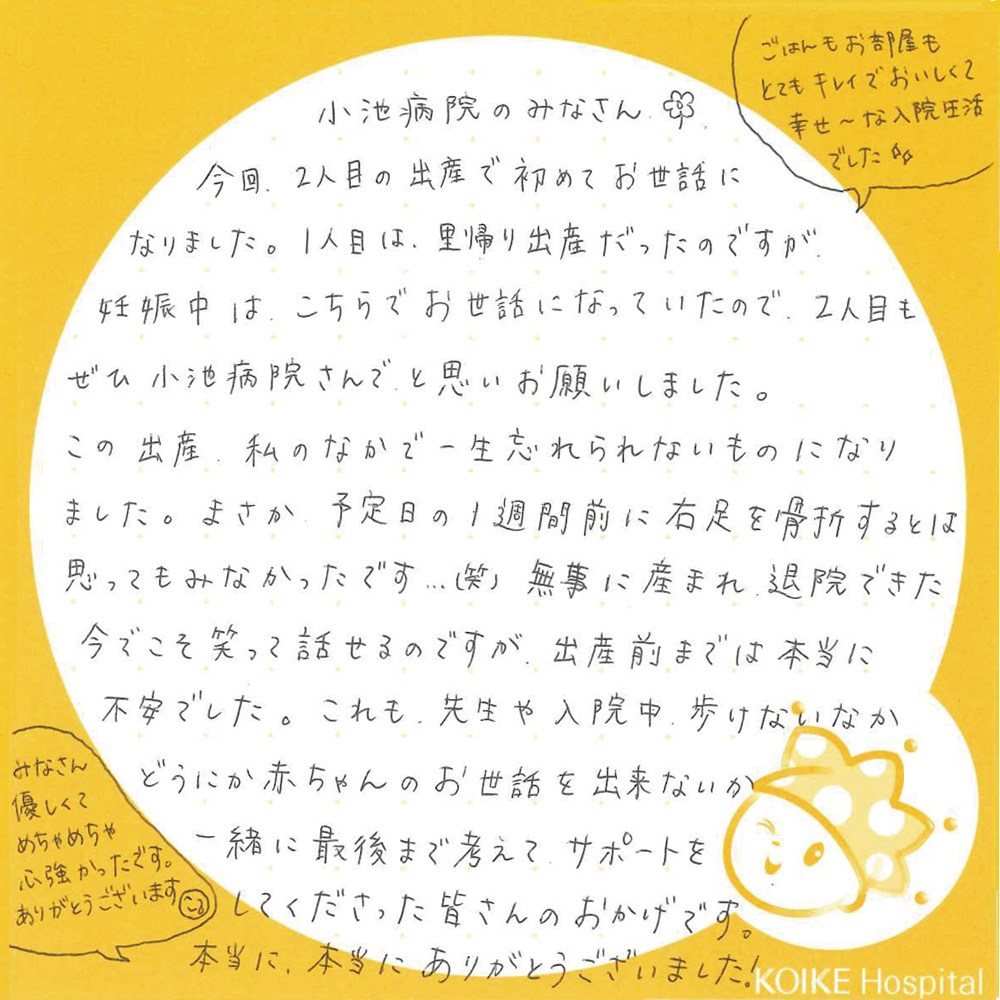 ごはんもお部屋も
とてもキレイでおいしくて
幸せ〜な入院生活
でした
小池病院のみなさん
今回、2人目の出産で初めてお世話に
なりました。1人目は、里帰り出産だったのですが、
妊娠中は、こちらでお世話になっていたので、2人目も
ぜひ小池病院さんで、と思いお願いしました。
この出産、私のなかで一生忘れられないものになり
ました。まさか、予定日の1週間前に右足を骨折するとは
思ってもみなかったです…(笑) 無事に産まれ、退院できた
今でこそ笑って話せるのですが、出産前までは本当に
不安でした。これも、先生や入院中、歩けないなか
どうにか赤ちゃんのお世話を出来ないか
一緒に最後まで考えて、サポートを
してくださった皆さんのおかげです。
本当に、本当にありがとうございました!
みなさん
優しくて
めちゃめちゃ
心強かったです。
ありがとうございます
KOIKE Hospital